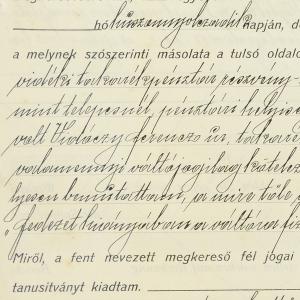 hó huszonnyolczadik napján, d
a melynek szószerinti másolata a tulsó oldalo
vidéki takarékpénztár részvény-
mint telepesnél, pénztári helyisé
volt Vidóczy Ferencz úr, takaré
valamennyi váltójogilag kötelez
lyesen bemutattam, a mire tőle
"fedezet hiányában a váltóra fiz
Miről, a fent nevezett megkereső fél jogai
tanusítványt kiadtam.